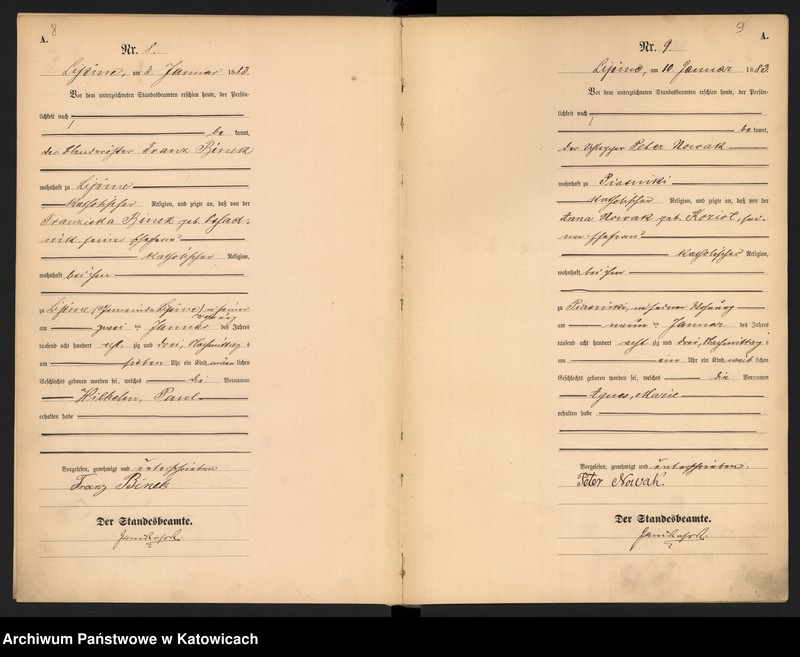 8
A.
Nr. 8.
Lipine, am 3 Januar 1883.
Vor dem unterzeichneten Standesbeamten erschien heute, der Persön-
lichkeit nach
be kannt,
der Franz Binek
wohnhaft zu Lipine
katholischer Religion, und zeigte an, daß von der
Franziska Binek geb.
seiner Ehefrau
katholischer Religion,
wohnhaft bei ihm
zu Lipine (Gemeinde Lipine) in seiner
Wohnung
am zwei ten Januar des Jahres
tausend acht hundert acht zig und drei, Nachmittags
um sieben Uhr ein Kind männ lichen
Geschlechts geboren worden sei, welches die Vornamen
Wilhelm, Paul
erhalten habe
Vorgelesen, genehmigt und unterschrieben
Franz Binek
Der Standesbeamte.
9
A.
Nr. 9.
Lipine, am 10 Januar 1883.
Vor dem unterzeichneten Standesbeamten erschien heute, der Persön-
lichkeit nach
be kannt,
der Schlepper Peter Nowak
wohnhaft zu Piasniki
katholischer Religion, und zeigte an, daß von der
Anna Nowak geb. Koziol, sei-
ner Ehefrau
katholischer Religion,
wohnhaft bei ihm
zu Piasniki, in seiner Wohnung
am neun ten Januar des Jahres
tausend acht hundert acht zig und drei, Nachmittags
um ein Uhr ein Kind weib lichen
Geschlechts geboren worden sei, welches die Vornamen
Agnes, Marie
erhalten habe
Vorgelesen, genehmigt und unterschrieben.
Peter Nowak.
Der Standesbeamte.
Archiwum Państwowe w Katowicach